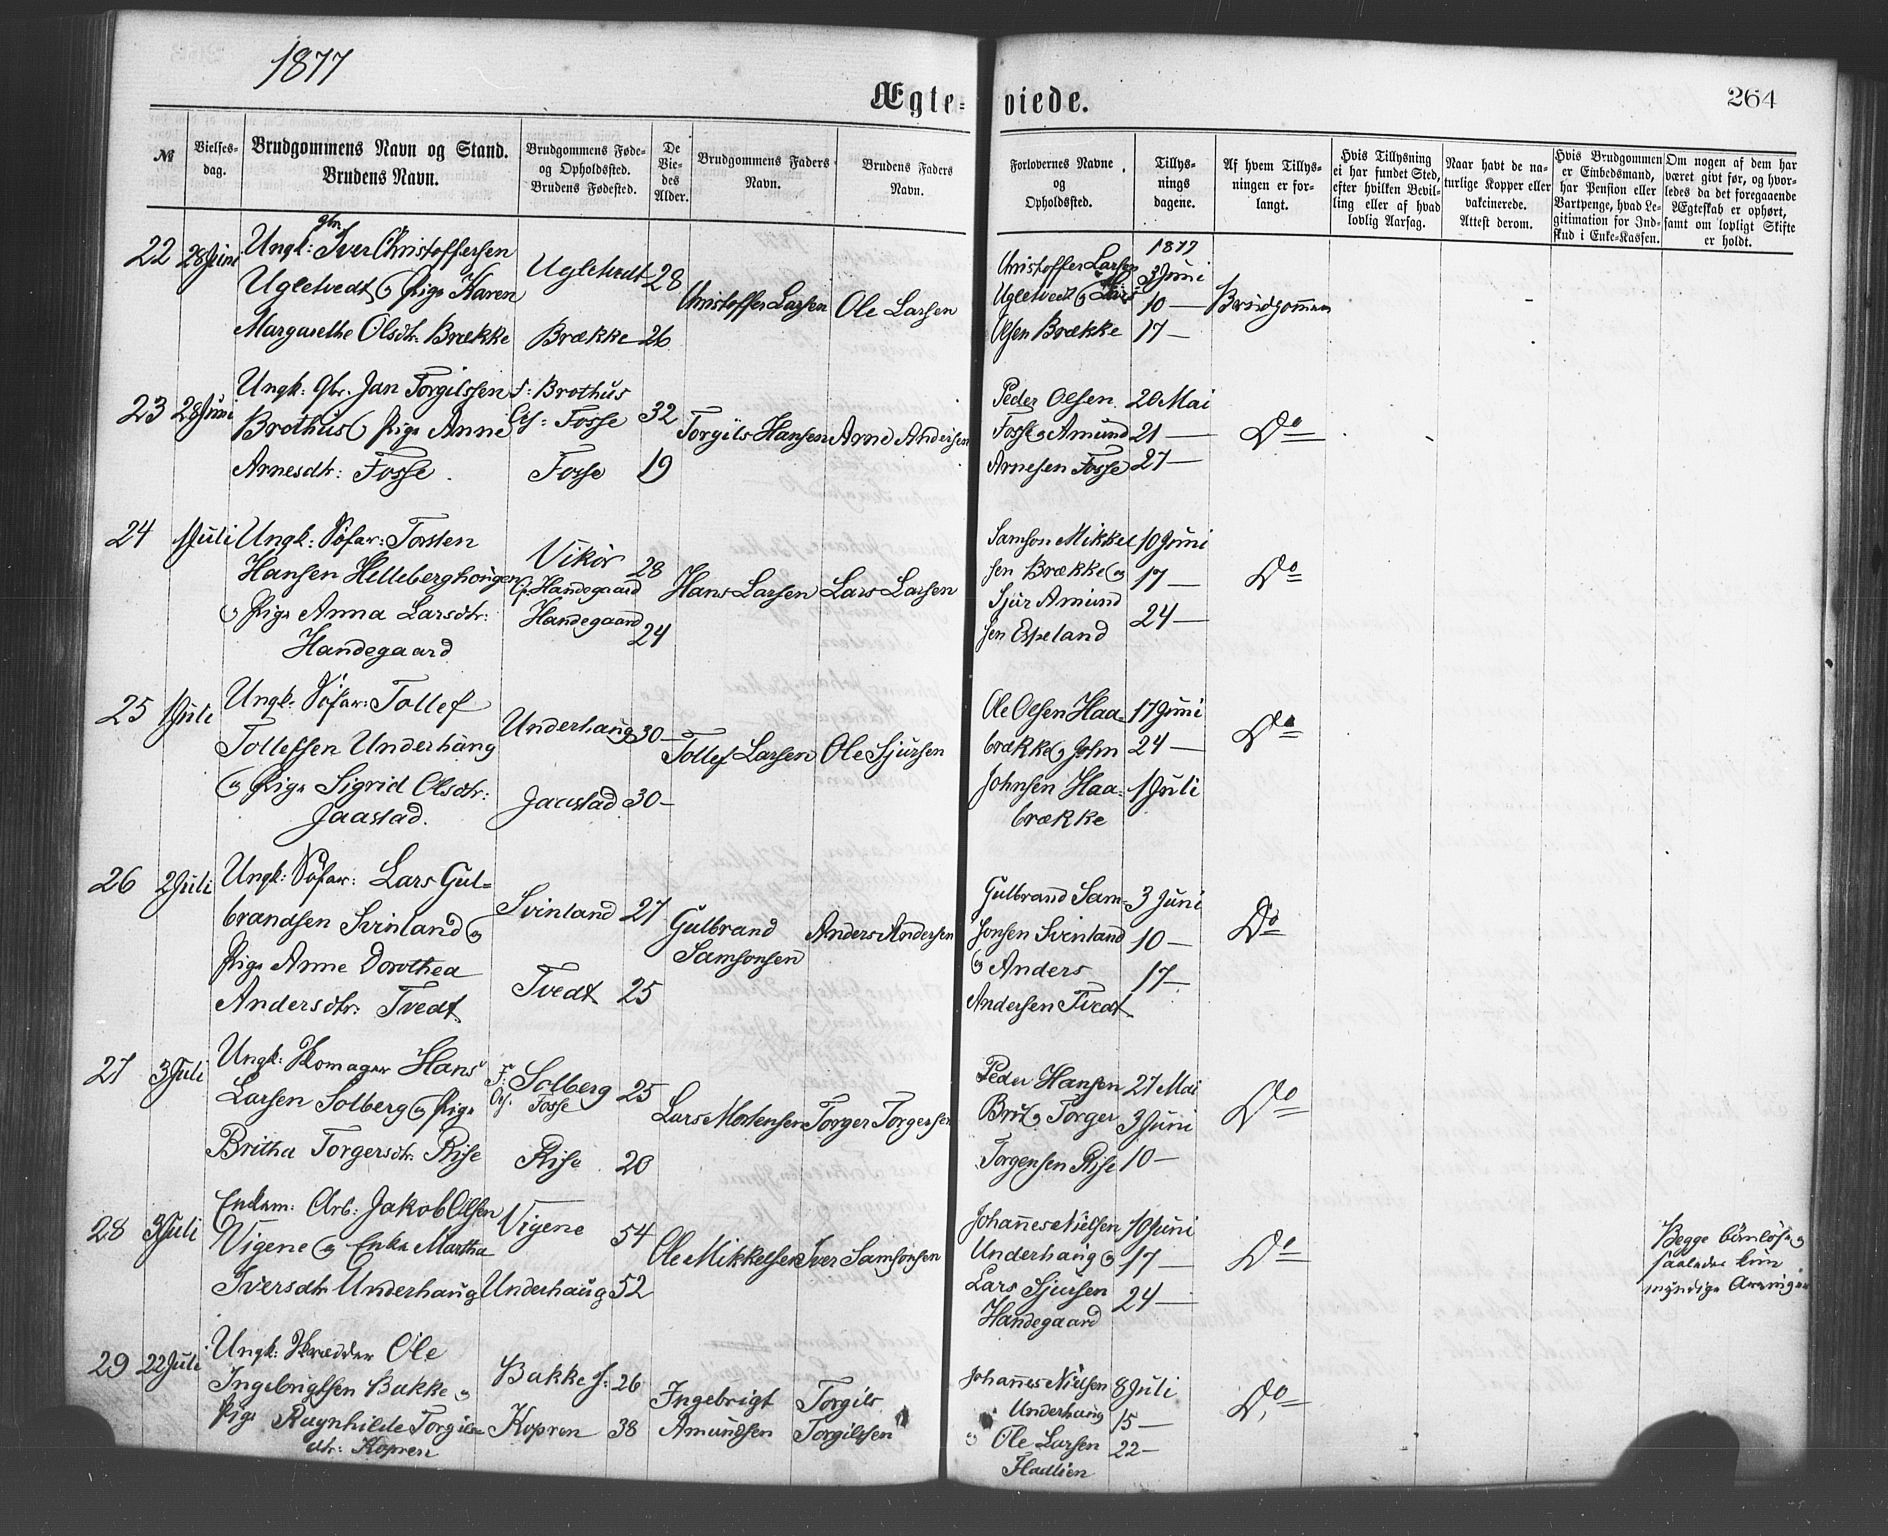 1877
Ægte-viede.
264
№
Vielses-
dag.
Brudgommens Navn og Stand.
Brudens Navn.
Brudgommens Føde-
og Opholdssted.
Brudens Fødested.
De
Vie-
des
Alder.
Brudgommens Faders
Navn.
Brudens Faders
Navn.
Forlovernes Navne
og
Opholdssted.
Tillys-
nings
dagene.
Af hvem Tillys-
ningen er for-
langt.
Hvis Tillysning
ei har fundet Sted,
efter hvilken Bevil-
ling eller af hvad
lovlig Aarsag.
Naar havt de na-
turlige Kopper eller
vakcinerede.
Attest derom.
Hvis Brudgommen
er Embedsmand,
har Pension eller
Vartpenge, hvad Le-
gitimation for Ind-
skud i Enke-Kassen.
Om nogen af dem har
været givt før, og hvor-
ledes da det foregaaende
Ægteskab er ophørt,
samt om lovligt Skifte
er holdt.
22 28 Juni
gbr.
Ungk: Iver Christoffersen
Ugletvedt og Pige Karen
Margarethe Olsdtr: Brække
Ugletvedt 28
Brække 26
Christoffer Larsen
Ole Larsen
Christoffer Larsen
Ugletvedt og
Olsen Brække
1877
3 Juni
10 —
17 —
Brudgommen
23 28 Juni
Ungk: gbr. Jan Torgilssen
Brothus og Pige Anne
Arnesdtr: Fosse
f: Brothus
O: Fosse 32
Fosse 19
Torgils Hansen
Arne Andersen
Peder Olsen
Fosse og Amund
Arnesen Fosse
20 Mai
21 —
27 —
Do
24 1 Juli
Ungk: Søfar: Torsten
Hansen Helleberghougen
og Pige Anna Larsdtr:
Handegaard
Vikør 28
O: Handegaard
Handegaard 24
Hans Larsen
Lars Larsen
Samson Mikkel
sen Brække og
Sjur Amund
sen Espeland
10 Juni
17 —
24 —
Do
25 1 Juli
Ungk: Søfar: Tollef
Tollefsen Underhaug
og Pige Sigrid Olsdtr:
Jaastad.
Underhaug 30 —
Jaastad 30 —
Tollef Larsen
Ole Sjursen
Ole Olsen Haa-
brække og John
Johnsen Haa-
brække
17 Juni
24 —
1 Juli
Do
26 2 Juli
Ungk: Søfar: Lars Gul-
brandsen Svinland og
Pige Anne Dorothea
Andersdtr: Tvedt
Svinland 27
Tvedt 25
Gulbrand
Samsonsen
Anders Andersen
Gulbrand Sam-
sonsen Svinland
og Anders
Andersen Tvedt
3 Juni
10 —
17 —
Do
27 3 Juli
Ungk: Skomager Hans
Larsen Solberg og Pige
Britha Torgersdtr: Rise
F: Solberg 25
O: Fosse
Rise 20
Lars Mortensen
Torger Torgersen
Peder Hansen
Bru og Torger
Torgersen Rise
27 Mai
3 Juni
10 —
Do
28 3 Juli
Enkem: Arb: Jakob Olsen
Vigene og Enke Martha
Iversdtr Underhaug
Vigene 54
Underhaug 52
Ole Mikkelsen
Iver Samsonsen
Johannes Nielsen
Underhaug og
Lars Sjursen
Handegaard
10 Juni
17 —
24 —
Do
Begge børnløse og
saaledes kun
myndige Arvinger
29 22 Juli
Ungk: Skrædder Ole
Ingebrigtsen Bakke og
Pige Ragnhilde Torgils-
dtr: Kopren
Bakke f: 26
Kopren 38
Ingebrigt
Amundsen
Torgils
Torgilssen
Johannes Nielsen
Underhaug
og Ole Larsen
Fladlien
8 Juli
15 —
22 —
Do